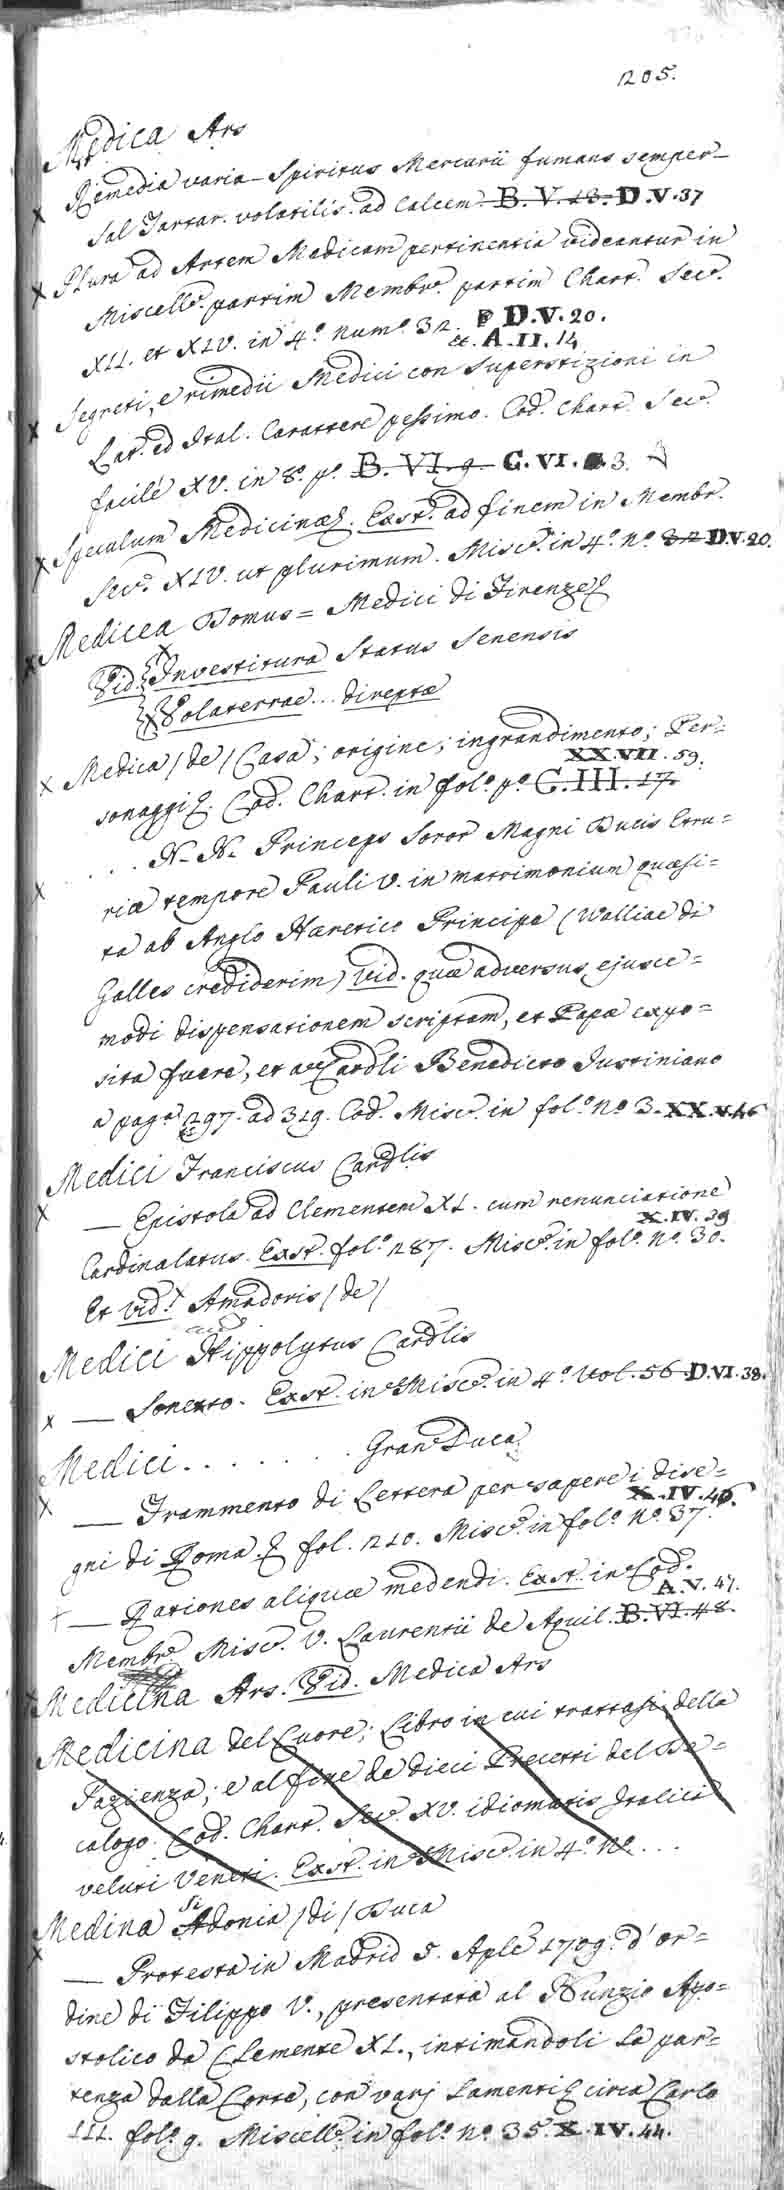 1205.
Medica Ars
Remedia varia Spiritus Mercurii fumans semper
x Sal Tartar. volatilis. ad Calcem. B. V. 18. D.V.37
x Plura ad Artem Medicam pertinentia videantur in
Miscell.º partim Membr.º partim Chart. Sec.º
XII. et XIV. in 4.º num.º 32. D.V.20.
et. A.II.14
x Segreti, e rimedii Medici con Superstizioni in
Lat. ed Ital. Carattere pessimo. Cod. Chart. Sec.
facile XV. in 8.º p.º B. VI. 9. C.VI. 3.
x Speculum Medicinae. Exst. ad finem in Membr.
Sec.º XIV. ut plurimum. Misc.º in 4.º n.º 32 D.V.20.
x Medicea Domus = Medici di Firenze
Vid. Investitura Status Senensis
x Volaterrae... direptae
x Medica /de/ Casa; origine; ingrandimento; Per=
XX.VII.59.
sonaggi. Cod. Chart. in fol.º p.º C.III.17.
x . . . . N. N. Princeps Soror Magni Ducis Etru=
riae tempore Pauli V. in matrimonium quaesi=
ta ab Anglo Haeretico Principe (Walliae di
Galles crediderim) vid. quae adversus ejusce=
modi dispensationem scriptam, et Papae expo=
sita fuere, et a Cardli Benedicto Justiniano
a pag.ª 297. ad 319. Cod. Misc.º in fol.º n.º 3. XX.V.46
Medici Franciscus Cardlis
x — Epistola ad Clementem XI. cum renunciatione
X.IV.39
Cardinalatus. Exst. fol.º 187. Misc.º in fol.º n.º 30.
Et vid. Amadoris /de/
Medici Hippolytus Cardlis
x — Sonetto. Exst. in Misc.º in 4.º Vol. 56. D.VI.38.
Medici . . . . . . . Gran Duca
x — Frammento di Lettera per sapere i dise=
X.IV.46.
gni di Roma. fol. 210. Misc.º in fol.º n.º 37.
† — Rationes aliquae medendi. Exst. in Cod.
A.V.47.
Membr.º Misc.º V. Laurentii de Aquil. B.VI.48.
x Medicina Ars. Vid. Medica Ars
Medicina del Cuore; Libro in cui trattasi della
Pazienza; e al fine de dieci Precetti del De=
calogo. Cod. Chart. Sec.º XV. idiomatis Italici
veluti Veneti. Exst. in Misc.º in 4.º n.º . . .
Medina Si
x Adonia /di/ Duca
— Protesta in Madrid 5. Aple 1709. d'or=
dine di Filippo V., presentata al Nunzio Apo=
stolico da Clemente XI., intimandoli la par=
tenza dalla Corte, con varj lamenti circa Carlo
III. fol.º 9. Miscell.º in fol.º n.º 35. X.IV.44.